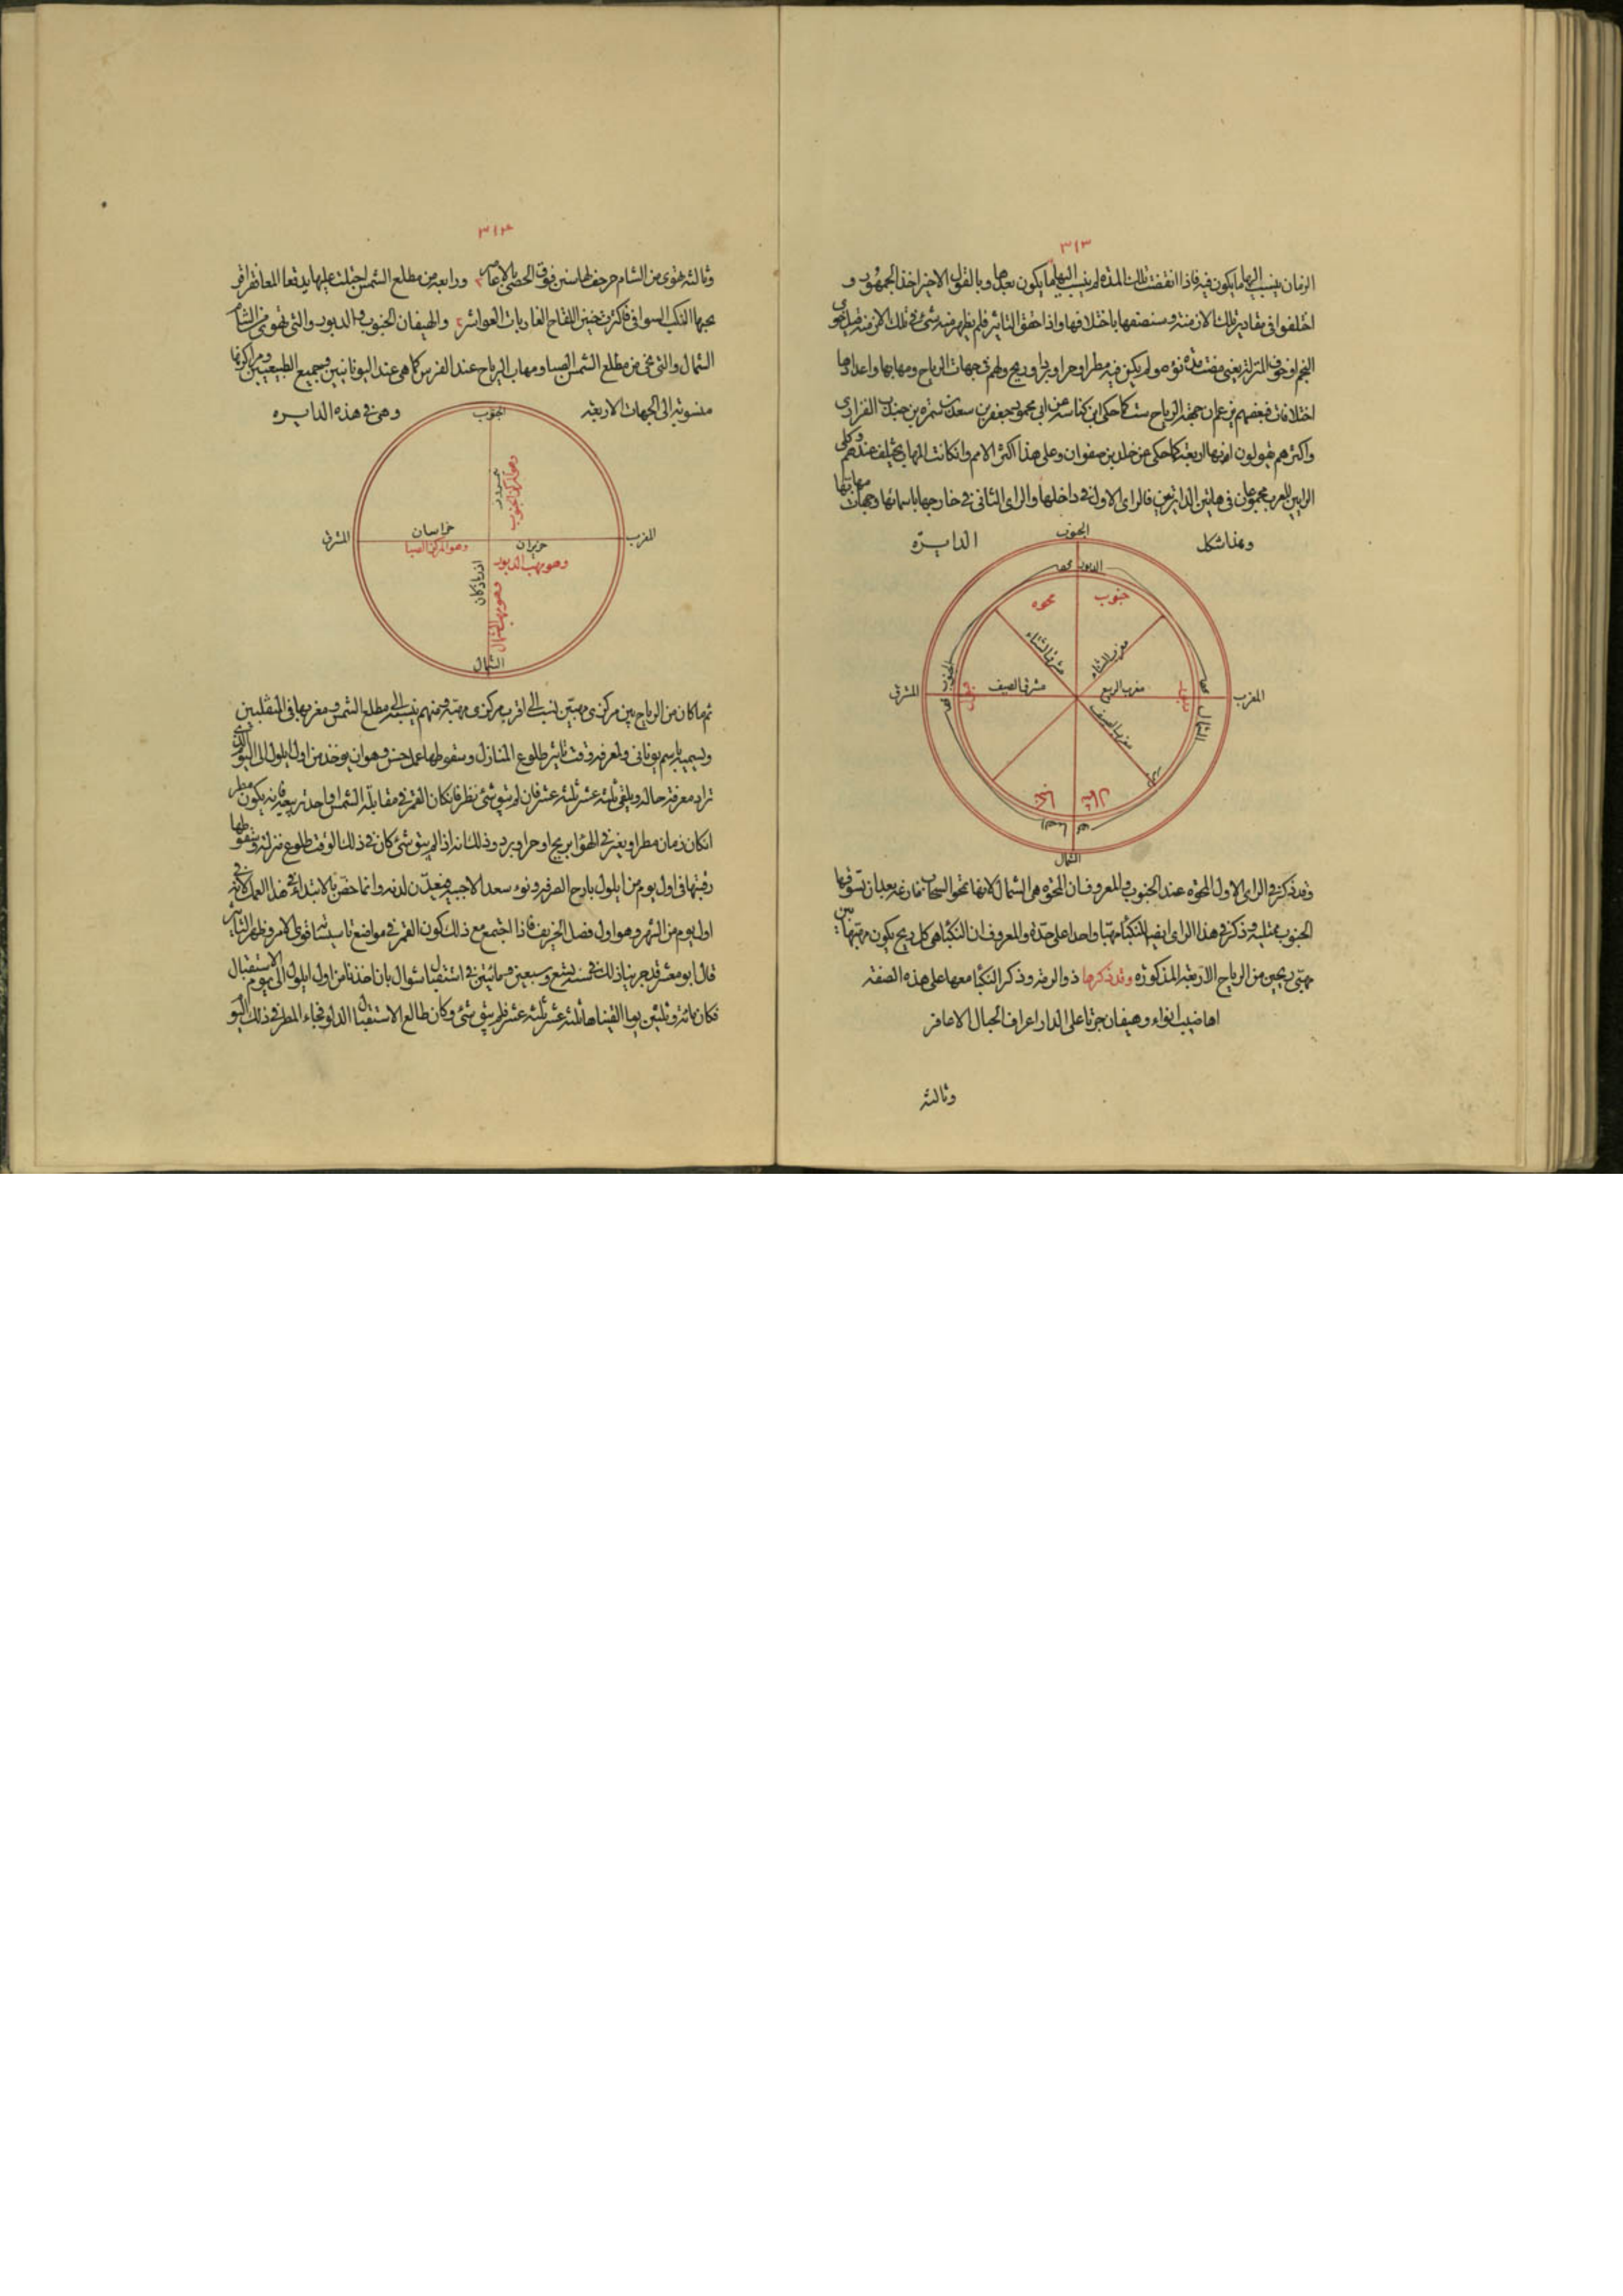 ٣١٣
الزمان ينسب اليها ما يكون فيه فاذا انقضت تلك المدة لم ينسب اليها ما يكون بعدها وبالقول الاخير اخذ الجمهور و
اختلفوا في مقادير تلك الازمنة وسنصفها باختلافها واذا حقق التاثير فلم يظهر فيه شئ في تلك الازمنة قيل خوى
النجم او خوت المنزلة يعني مضت مدة نوءه ولم يكن فيه مطر او حر او برد او ريح ولهم في جهات الرياح ومهابها واعدادها
اختلافات فبعضهم يزعم ان جهة الرياح ست كما حكى ابن كناسة عن ابي محمد جعفر بن سعد بن سمرة بن جندب الفزاري
واكثرهم يقولون انها اربعة كما حكى عن خلد بن صفوان وعلى هذا اكثر الامم وان كانت المهاب يختلف عندهم وكلى
الرايين للعرب مجموعان في هاتين الدايرتين فالراى الاول في داخلها والراى الثاني في خارجها باسمائها وجهات مهابها
وهذا شكل الدايرة
الجنوب
الدبور
جنوب
محوه
مشرق الشتاء
مغرب الشتاء
مشرق الصيف
مغرب الربيع
مغرب الصيف
المشرق
المغرب
الجنوب
الشمال
الشمال
وقد ذكر في الراى الاول المحوة عند الجنوب والمعروف ان المحوة هي الشمال لانها تمحو السحاب فارغة بعد ان تسوقها
الجنوب ممتلية وذكر في هذا الراى ايضا للنكباء مهبا واحدا على حدة والمعروف ان النكباء هي كل ريح يكون مهبها بين
مهبى ريحين من الرياح الاربعة المذكورة وقد ذكرها ذو الرمة وذكر النكباء معها على هذه الصفة
اهاضيب انواء وهيفان جرتا على الدار اعراف الجبال الاعافر
وثالثة
٣١٤
وثالثة تهوى من الشام حرجف لها سنن فوق الحصى بالاعاصر ورابعة من مطلع الشمس اجفلت عليها بدقعاء المعا فقراقر
يحثها النكب السوافي فاكثرت حنين اللقاح القاربات العواشر والهيفان الجنوب والدبور والتي تهوى من الشام
الشمال والتي تجئ من مطلع الشمس الصبا ومهاب الرياح عند الفرس كما هي عند اليونانيين وجميع الطبيعيين ومراكزها
منسوبة الى الجهات الاربعة وهي في هذه الدايره
الجنوب
وهو المركز الجنوب
خراسان
وهو المركز الصبا
المشرق
المغرب
خربران
وهو مهب الدبور
اذرباذكان
وهو مهب الشمال
الشمال
ثم ما كان من الرياح بين مركزى مهبين نسب الى اقرب مركزى مهبه ومنهم من ينسبه الى مطلع الشمس ومغربها في المنقلبين
ويسميه باسم يوناني ولمعرفة وقت تاثير طلوع المنازل وسقوطها عمل حسن وهو ان يوخذ من اول ايلول الى اليوم الذى
تراد معرفة حاله ويلقى ثلثة عشر ثلثة عشر فان لم يبق شئ نظر فان كان القمر في مقابلة الشمس او احد تربيعيه فانه يكون مطر
ان كان زمان مطر او يغير في الهوا بريح او حر او برد وذلك انه اذا لم يبق شئ كان في ذلك الوقت طلوع منزلة وسقوطها
رقبتها في اول يوم من ايلول بارح الصرفة ونوء سعد الاخبية فيتعدلان لديه وانما خص بالابتداء في هذا العمل لانه في
اول يوم من الشهر وهو اول فصل الخريف فاذا اجتمع مع ذلك كون القمر في مواضع تاسيساتها قوى الامر وظهر التاثير
قال ابو معشر قد جربنا ذلك في سنة تسع وسبعين ومائتين في استقبال شوال بان اخذنا من اول ايلول الى يوم الاستقبال
فكان مائة وثلثين يوما القيناها ثلثة عشر ثلثة عشر فلم يبق شئ وكان طالع الاستقبال الدلو فجاء المطر في ذلك اليوم